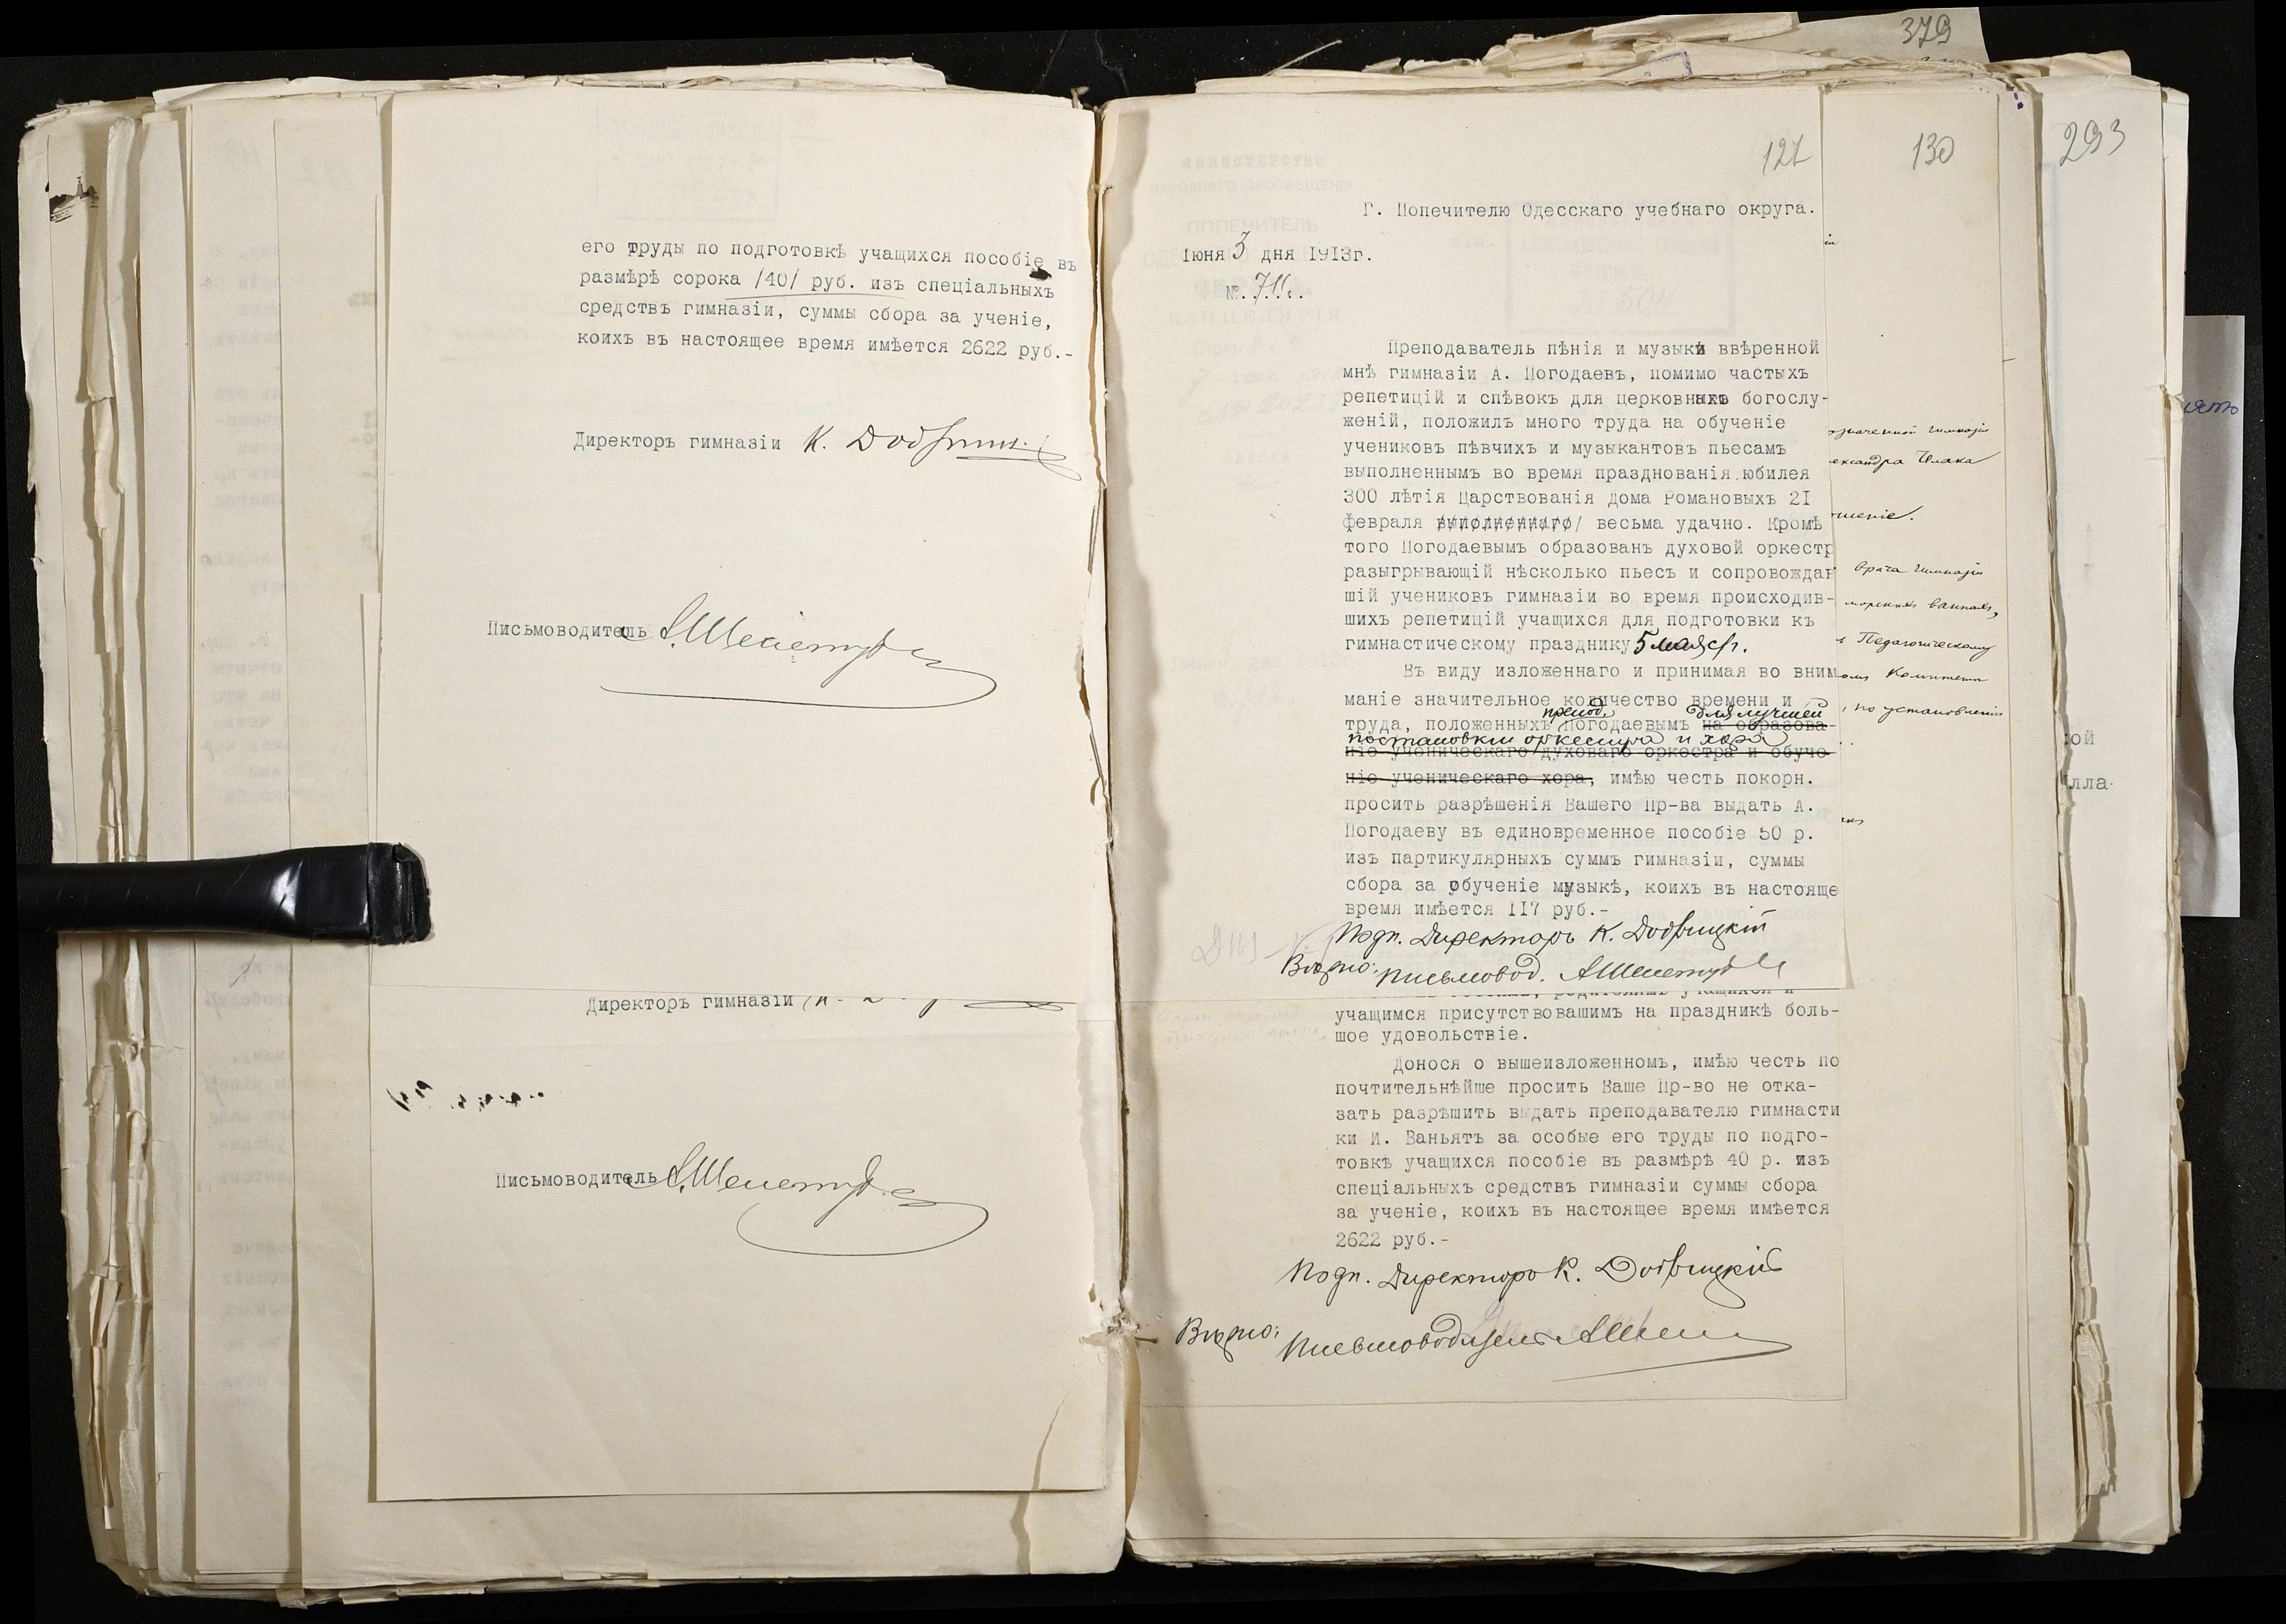 его труды по подготовкѣ учащихся пособіе въ
размѣрѣ сорока /40/ руб. изъ спеціальныхъ
средствъ гимназіи, суммы сбора за ученіе,
коихъ въ настоящее время имѣется 2622 руб.-
Директоръ гимназіи К.
Письмоводитель
Директоръ гимназіи
Письмоводитель
379
127
130
293
Г. Попечителю Одесскаго учебнаго округа.
Іюня 3 дня 1913г.
№. 711.
Преподаватель пѣнія и музыки ввѣренной
мнѣ гимназіи А. Погодаевъ, помимо частыхъ
репетицій и спѣвокъ для церковныхъ богослу-
женій, положилъ много труда на обученіе
учениковъ пѣвчихъ и музыкантовъ пьесамъ
выполненнымъ во время празднованія юбилея
300 лѣтія Царствованія Дома Романовыхъ 21
февраля выполненнаго/ весьма удачно. Кромѣ
того Погодаевымъ образованъ духовой оркестр
разыгрывающій нѣсколько пьесъ и сопровождав
шій учениковъ гимназіи во время происходив-
шихъ репетицій учащихся для подготовки къ
гимнастическому празднику 5 мая с/г.
Въ виду изложеннаго и принимая во вним
маніе значительное количество времени и
препод. для лучшей
труда, положенныхъ Погодаевымъ на образова-
постановки оркестра и хора
ніе ученическаго духоваго оркестра и обуче-
ніе ученическаго хора, имѣю честь покорн.
просить разрѣшенія Вашего Пр-ва выдать А.
Погодаеву въ единовременное пособіе 50 р.
изъ партикулярныхъ суммъ гимназіи, суммы
сбора за обученіе музыкѣ, коихъ въ настояще
время имѣется 117 руб.-
Подп. Директоръ К.
Вѣрно: письмовод.
учащимся присутствовашимъ на праздникѣ боль-
шое удовольствіе.
Донося о вышеизложенномъ, имѣю честь по
почтительнѣйше просить Ваше Пр-во не отка-
зать разрѣшить выдать преподавателю гимнасти
ки И. Ваньятъ за особые его труды по подго-
товкѣ учащихся пособіе въ размѣрѣ 40 р. изъ
спеціальныхъ средствъ гимназіи суммы сбора
за ученіе, коихъ въ настоящее время имѣется
2622 руб.-
Подп. Директоръ К.
Вѣрно:
Письмоводитель
врача гимназіи
морскихъ ваннахъ,
Педагогическому
по установленію
ой
лла-